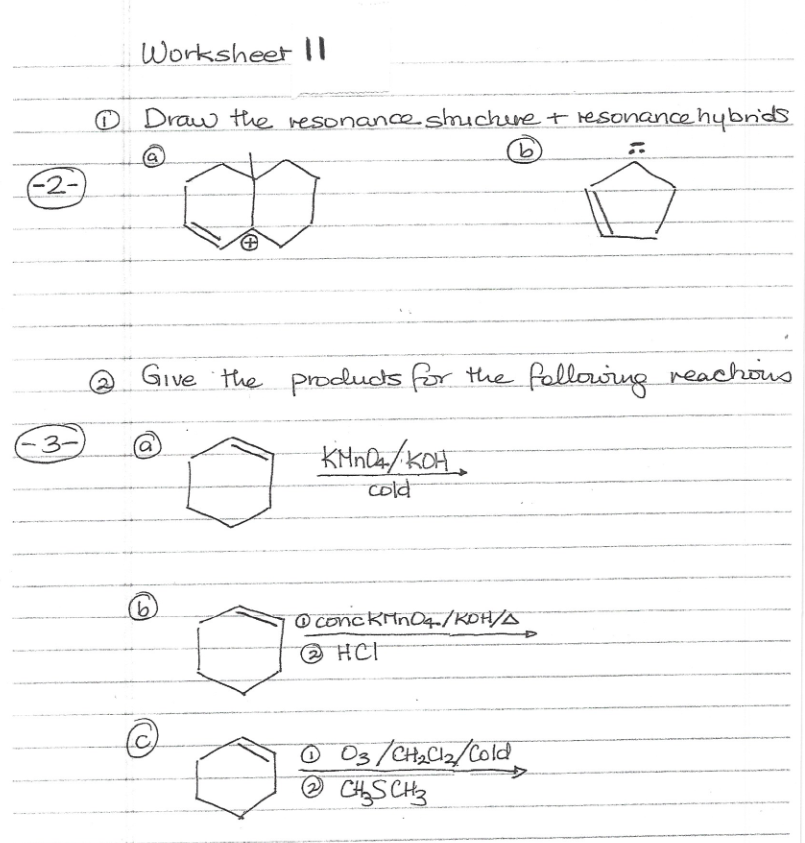 Worksheet 11
① Draw the resonance structure + resonance hybrids
ⓐ ⓑ
-2-
⊕
② Give the products for the following reactions
-3- ⓐ KMnO4/KOH
cold
ⓑ ① conc KMnO4/KOH/Δ
② HCl
ⓒ ① O3/CH2Cl2/Cold
② CH3SCH3